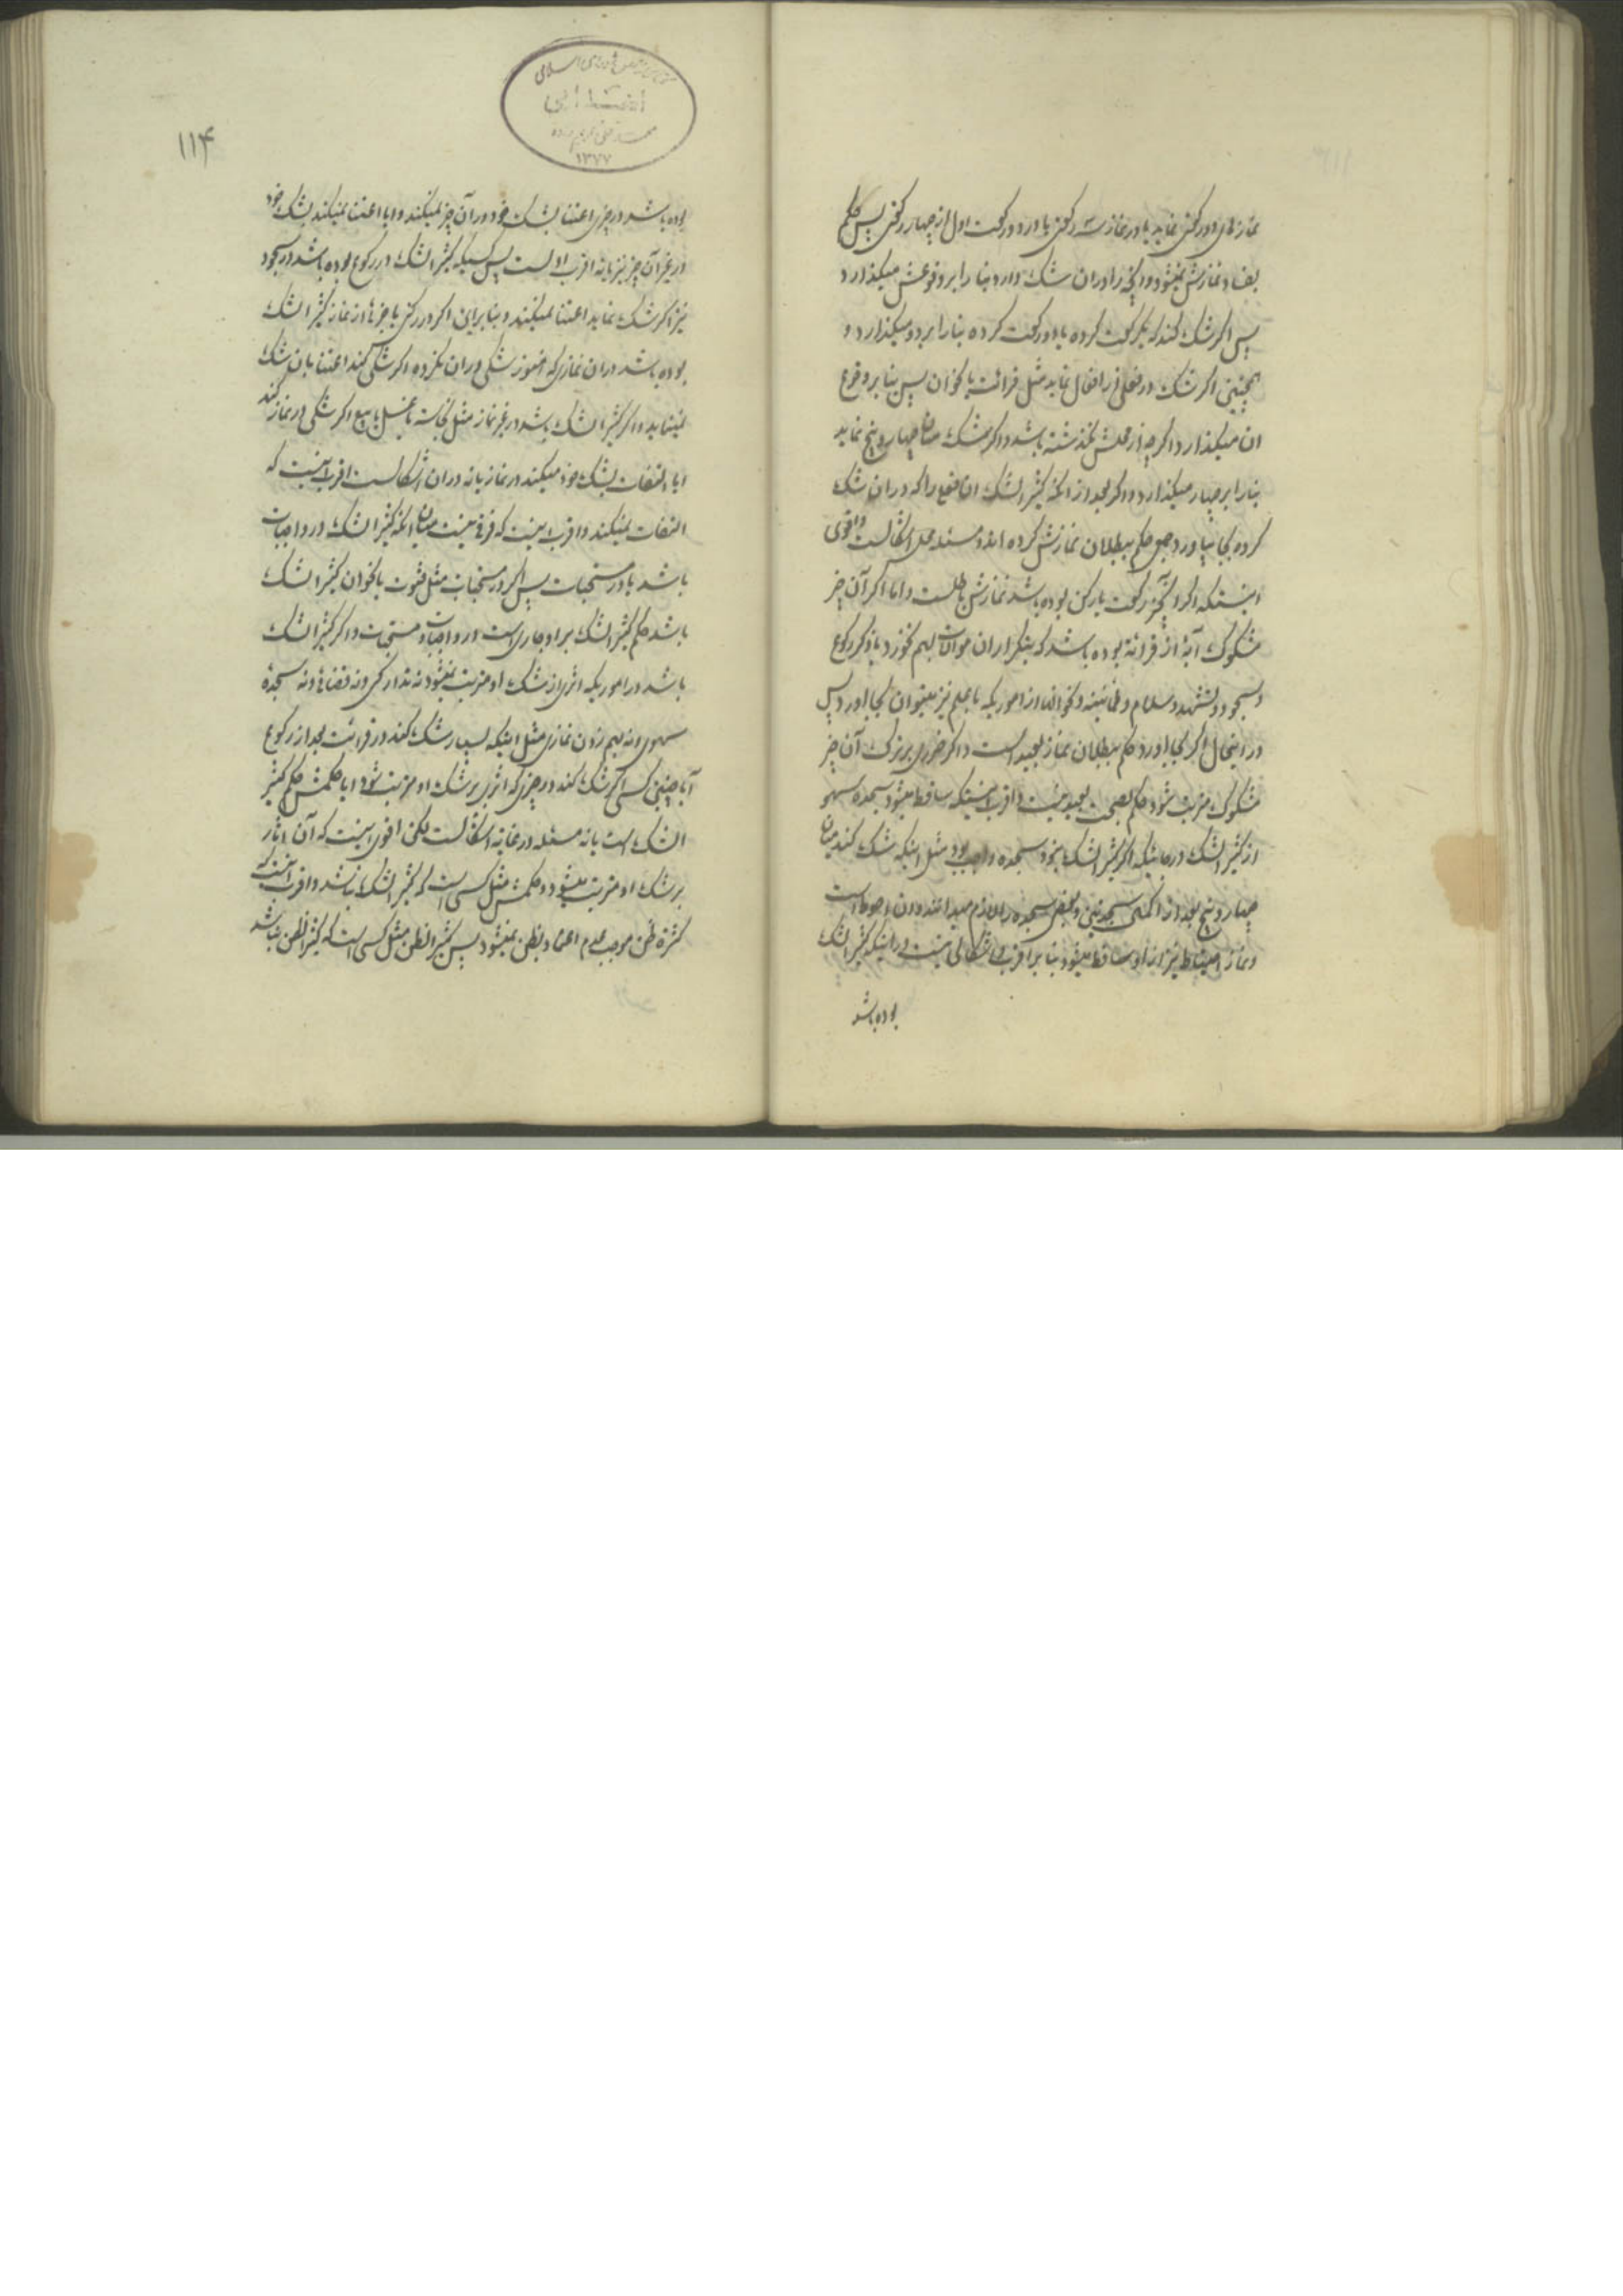 نمازهای دو رکعتی نماید یا در نماز سه رکعتی یا در دو رکعت اول از چهار رکعتی پس حکم
بفساد نمازش نمیشود و آنچه را در ان شک دارد بنا را بر وقوعش میگذارد
پس اگر شک کند که یکرکعت کرده یا دو رکعت کرده بنا را بر دو میگذارد و
همچنین اگر شک در فعلی از افعال نماید مثل قرائت یا نحو ان پس بنا بر وقوع
ان میگذارد اگرچه از محلش نگذشته باشد و اگر شک میان چهار و پنج نماید
بنا را بر چهار میگذارد و اگر بعد از انکه کثیر الشک ان فعل را که در ان شک
کرده بجا بیاورد جمعی حکم ببطلان نمازش کرده اند و مسئله محل اشکالست و اقوی
اینستکه اگر آنچیز رکعت یا رکن بوده باشد نمازش باطلست و اما اگر آن چیز
مشکوک آیهٔ از قرائة بوده باشد که بتکرار ان موالات بهم نخورد یا ذکر رکوع
و سجود و تشهد و سلام و طمانینه و نحو انها از اموریکه با علم نیز میتوان بجا اورد پس
در اینحال اگر بجا اورد حکم ببطلان نماز بعید است و اگر ضرری بر ترک آن چیز
مشکوک مترتب شود حکم بصحت بعید نیست و اقرب اینستکه ساقط میشود سجده سهو
از کثیر الشک در جائیکه اگر کثیر الشک نبود سجده واجب بود مثل اینکه شک کند میان
چهار و پنج بعد از اکمال سجدتین و بعضی سجده را لازم میدانند و ان احوط است
و نماز احتیاط نیز از او ساقط میشود بنا بر اقرب و اشکالی نیست در اینکه کثیر الشک
بوده باشد
۱۱۴
بوده باشد در چیزی اعتنا بشک خود در آن چیز نمیکند و ایا اعتنا نمیکند بشک خود
در غیر آن چیز نیز یا نه اقرب اولست پس کسیکه کثیر الشک در رکوع بوده باشد در سجود
نیز اگر شک نماید اعتنا نمیکند و بنابراین اگر در رکنی یا جزءها از نماز کثیر الشک
بوده باشد در ان نمازی که هنوز شکی در ان نکرده اگر شکی کند اعتنا بان شک
نمینماید و اگر کثیر الشک باشد در غیر نماز مثل نجاسة یا غسل یا بیع اگر شکی در نماز کند
ایا التفات بشک خود میکند در نماز یا نه در ان اشکالست اقرب اینست که
التفات نمیکند و اقرب اینست که فرقی نیست میان انکه کثیر الشک در واجبات
باشد یا در مستحبات پس اگر در مستحبات مثل قنوت یا نحو ان کثیر الشک
باشد حکم کثیر الشک بر او جاری است در واجبات و مستحبات و اگر کثیر الشک
باشد در اموریکه اثری از شک او مترتب نمیشود نه تدارکی و نه قضائی و نه سجدهٔ
سهوی و نه بهم زدن نمازی مثل اینکه بسیار شک کند در قرائت بعد از رکوع
آیا چنین کسی اگر شک کند در چیزی که اثری بر شک او مترتب شود ایا حکمش حکم کثیر
الشک است یا نه مسئله در غایة اشکالست لکن اقوی اینست که آن اثار
بر شک او مترتب میشود و حکمش مثل کسی است که کثیر الشک نباشد و اقرب آنست که
کثرة ظن موجب عدم اعتماد بظن نمیشود پس کثیر الظن مثل کسی است که کثیر الظن نباشد
۱۳۷۷